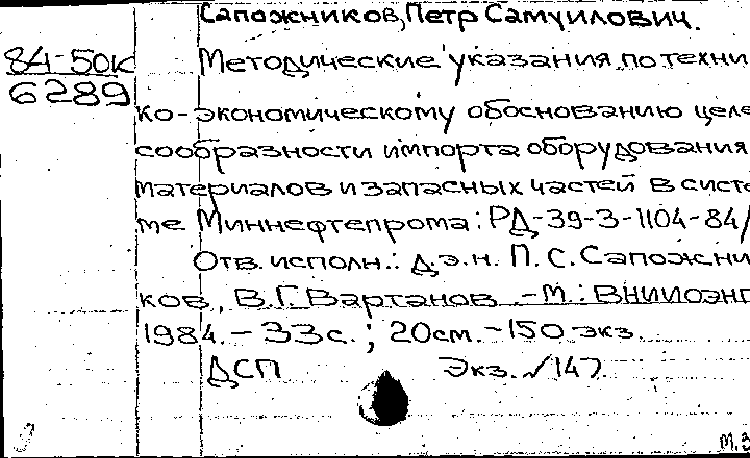 Сапожников, Петр Самуилович.
84-50к
Методические указания по техни
6289
ко-экономическому обоснованию целе
сообразности импорта оборудования
материалов и запасных частей в систе
ме Миннефтепрома: РД-39-3-1104-84/
Отв. исполн.: д.э.н. П.С. Сапожни
ков, В.Г. Вартанов. -М.: ВНИИОЭНГ
1984. - 33с.; 20см. - 150 экз.
ДСП Экз. №147
М.З